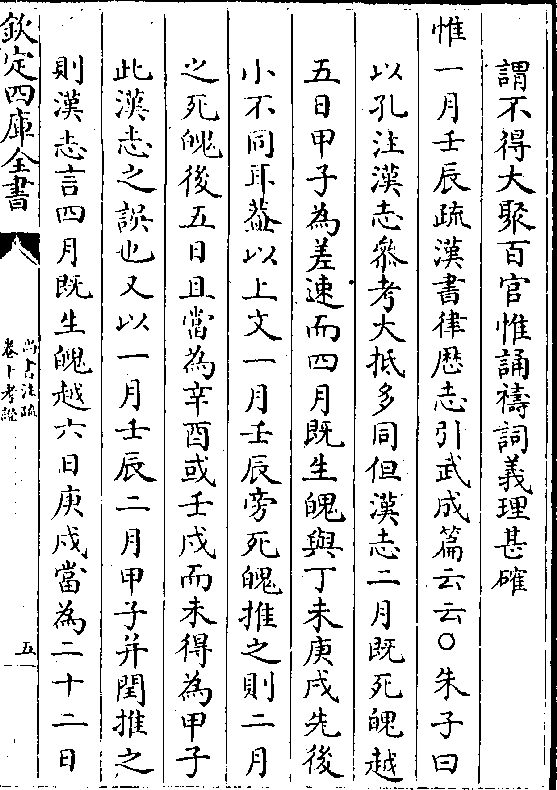 謂不得大聚百官惟誦禱詞義理甚確
惟一月壬辰疏漢書律歴志引武成篇云云○朱子曰
以孔注漢志叅考大抵多同但漢志二月既死魄越
五日甲子為差速而四月既生魄與丁未庚戌先後
小不同耳葢以上文一月壬辰旁死魄推之則二月
之死魄後五日且當為辛酉或壬戌而未得為甲子
此漢志之誤也又以一月壬辰二月甲子并閏推之
則漢志言四月既生魄越六日庚戌當為二十二日
欽定四庫全書
尚書注疏
卷十考證
五